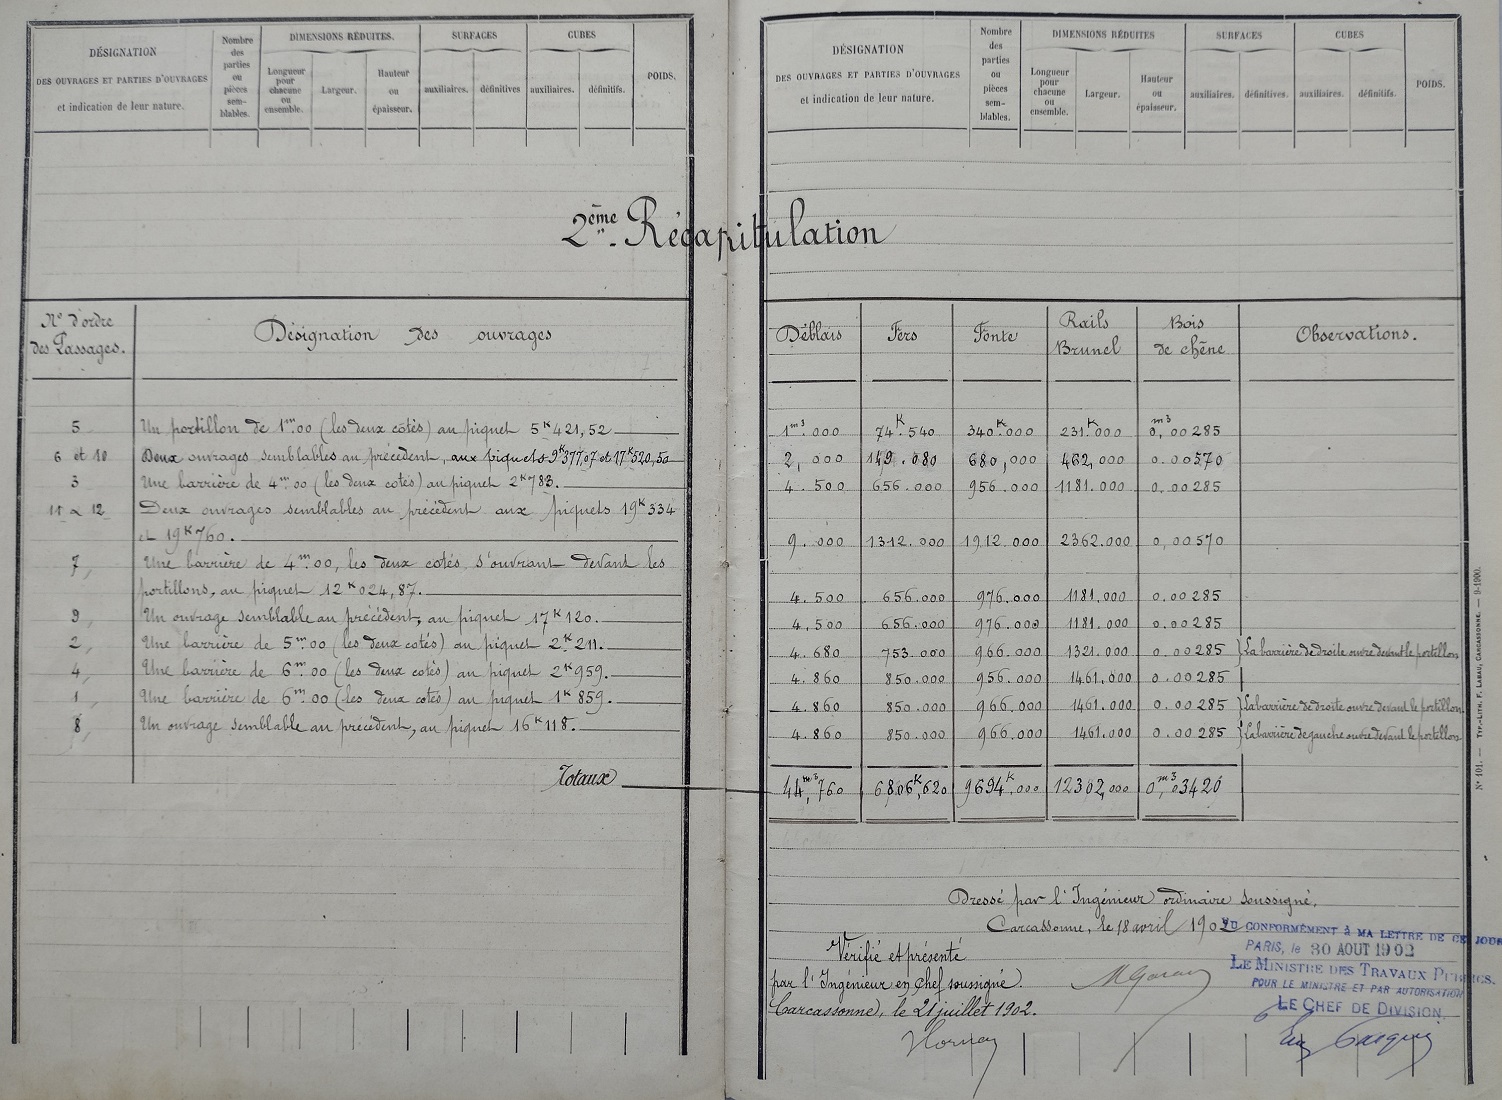 DÉSIGNATION
DES OUVRAGES ET PARTIES D'OUVRAGES
et indication de leur nature.
Nombre
des
parties
ou
pièces
sem-
blables.
DIMENSIONS RÉDUITES.
Longueur
pour
chacune
ou
ensemble.
Largeur.
Hauteur
ou
épaisseur.
SURFACES
auxiliaires.
définitives
CUBES
auxiliaires.
définitifs.
POIDS.
DÉSIGNATION
DES OUVRAGES ET PARTIES D'OUVRAGES
et indication de leur nature.
Nombre
des
parties
ou
pièces
sem-
blables.
DIMENSIONS RÉDUITES
Longueur
pour
chacune
ou
ensemble.
Largeur.
Hauteur
ou
épaisseur.
SURFACES
auxiliaires.
définitives.
CUBES
auxiliaires.
définitifs.
POIDS.
2ème. Récapitulation
Nos d'ordre
des Passages.
Désignation des ouvrages
Déblais
Fers
Fonte
Rails
Brunel
Bois
de chêne
Observations.
5 Un portillon de 1m.00 (les deux côtés) au piquet 5K421,52 1m3.000 74K.540 340K.000 231K.000 0m3,00285
6 et 10 Deux ouvrages semblables au précédent, aux piquets 9K377,07 et 17K520,50 2,000 149.080 680,000 462,000 0.00570
3 Une barrière de 4m.00 (les deux côtés) au piquet 2K783. 4.500 656.000 956.000 1181.000 0.00285
11 & 12 Deux ouvrages semblables au précédent aux piquets 19K334
et 19K760. 9.000 1312.000 1912.000 2362.000 0,00570
7, Une barrière de 4m.00, les deux côtés s'ouvrant devant les
portillons, au piquet 12K024,87. 4.500 656.000 976.000 1181.000 0.00285
9, Un ouvrage semblable au précédent, au piquet 17K120. 4,500 656.000 976.000 1181.000 0.00285
2, Une barrière de 5m.00 (les deux côtés) au piquet 2K211. 4.680 753.000 966.000 1321.000 0.00285 La barrière de droite ouvre devant le portillon
4, Une barrière de 6m.00 (les deux côtés) au piquet 2K959. 4.860 850.000 956.000 1461.000 0.00285
1, Une barrière de 6m.00 (les deux côtés) au piquet 1K859. 4.860 850.000 966.000 1461.000 0.00285 La barrière de droite ouvre devant le portillon.
8, Un ouvrage semblable au précédent, au piquet 16K118. 4.860 850.000 966.000 1461.000 0.00285 La barrière de gauche ouvre devant le portillon
Totaux 44m3,760 6806K,620 9694K,000 12302,000 0m3,03420
Dressé par l'Ingénieur ordinaire soussigné.
Carcassonne, le 18 avril 1902
Vérifié et présenté
par l'Ingénieur en Chef soussigné.
Carcassonne, le 21 juillet 1902.
VU CONFORMÉMENT à MA LETTRE DE CE JOUR
PARIS, le 30 AOUT 1902
LE MINISTRE DES TRAVAUX PUBLICS.
POUR LE MINISTRE ET PAR AUTORISATION
LE CHEF DE DIVISION,
N° 101. — TYP.-LITH. F. LABAU, CARCASSONNE. — 9-1900.